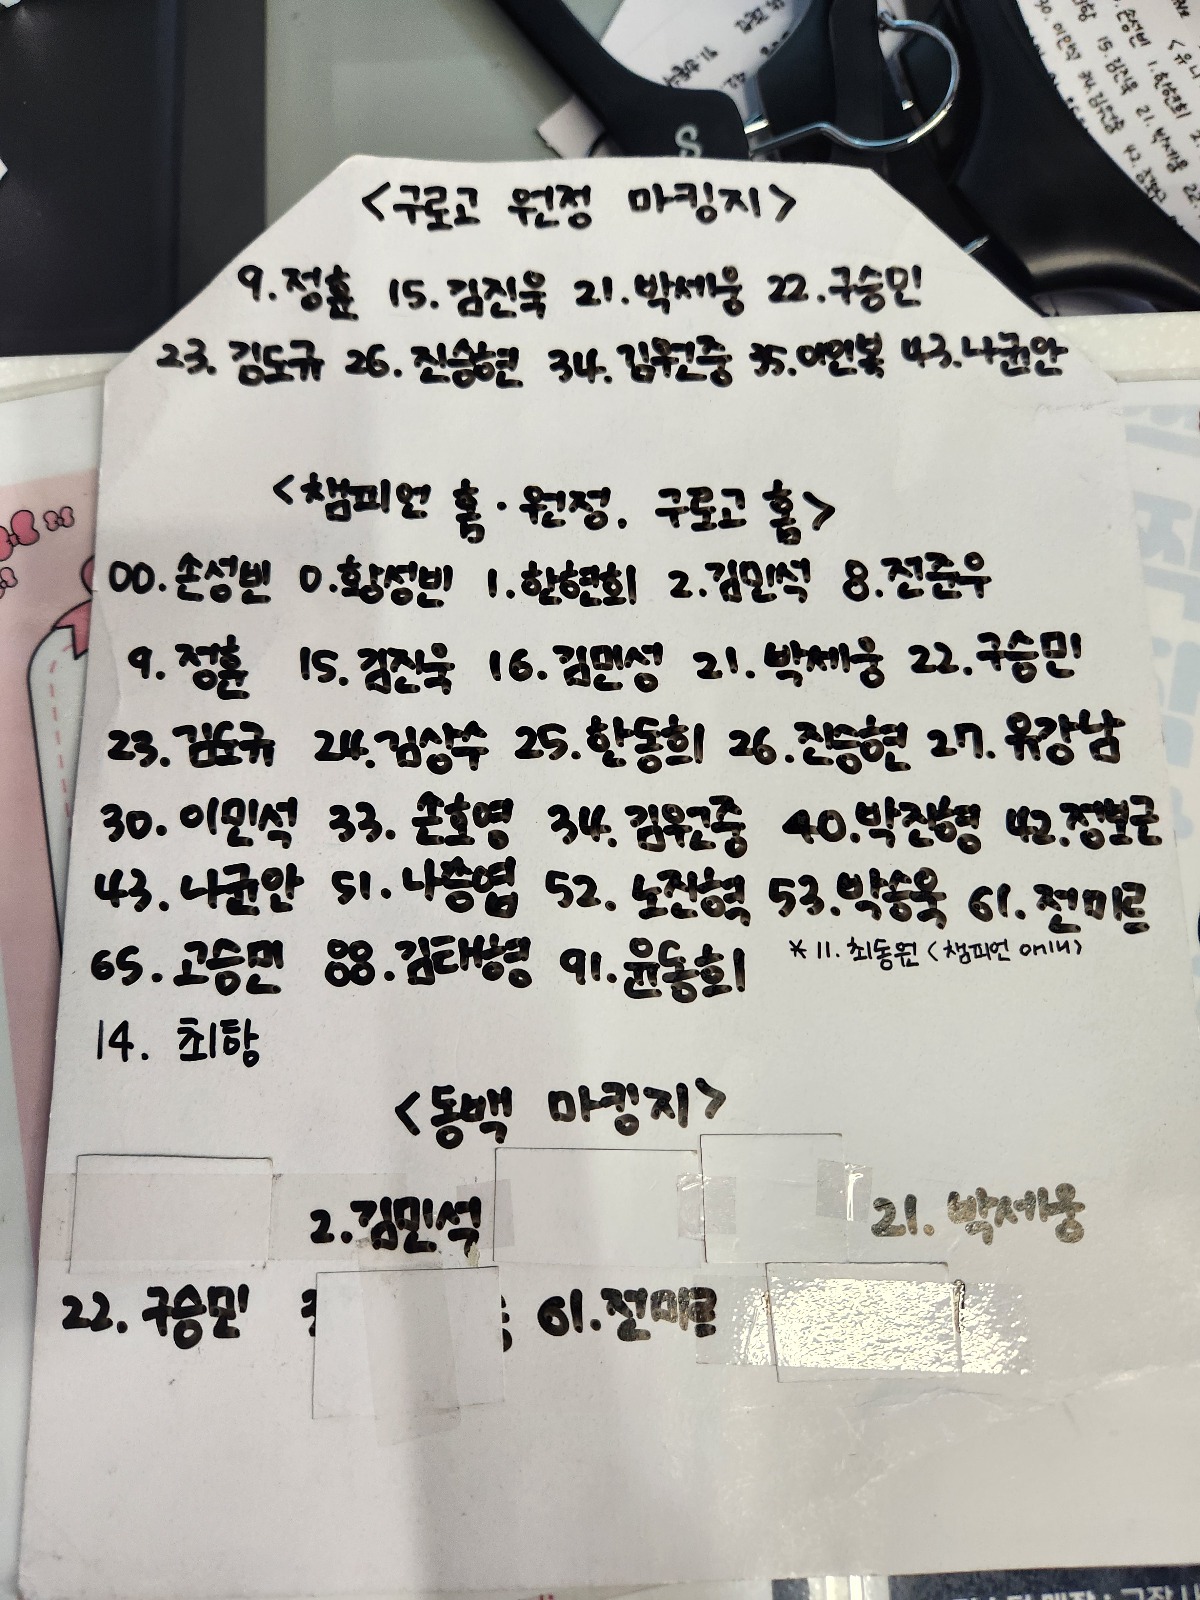 <구로고 원정 마킹지>
9.정훈 15.김진욱 21.박세웅 22.구승민
23.김도규 26.진승현 34.김원중 35.이인복 43.나균안
<챔피언 홈·원정. 구로고 홈>
00.손성빈 0.황성빈 1.한현희 2.김민석 8.전준우
9.정훈 15.김진욱 16.김민성 21.박세웅 22.구승민
23.김도규 24.김상수 25.한동희 26.진승현 27.유강남
30.이민석 33.손호영 34.김원중 40.박진형 42.정보근
43.나균안 51.나승엽 52.노진혁 53.박승욱 61.전미르
65.고승민 88.김태형 91.윤동희 *11.최동원<챔피언 only>
14. 최항
<동백 마킹지>
2.김민석 21.박세웅
22.구승민 61.전미르